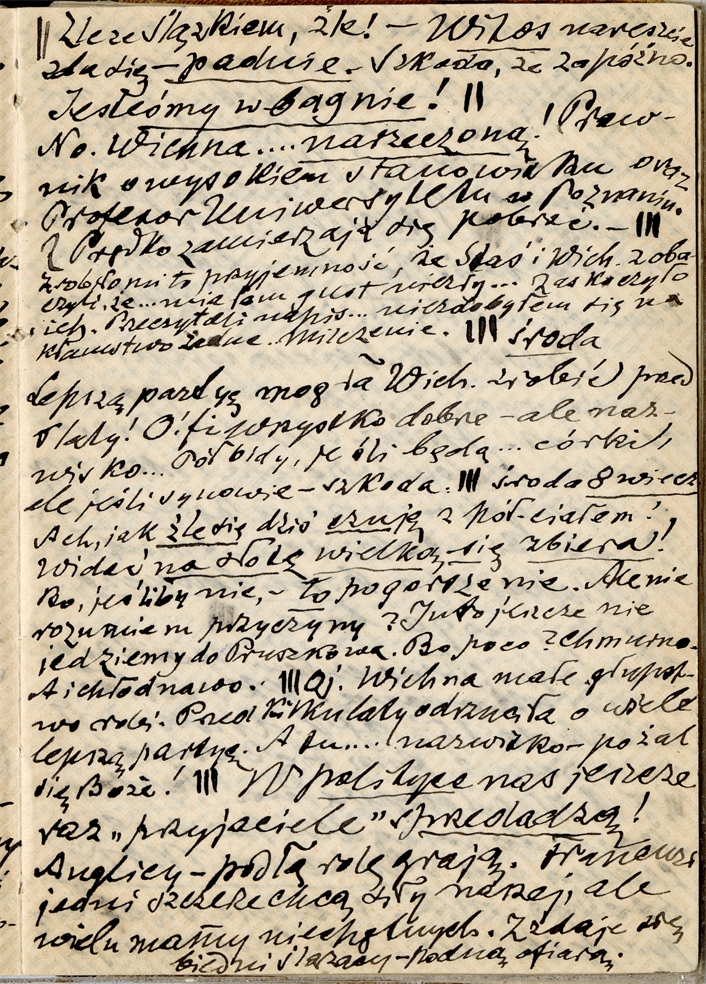 || Źle ze Ślązkiem, źle! – Witos nareszcie
zda się – padnie. Szkoda, że za późno.
Jesteśmy w bagnie! ||
No. Wichna.... narzeczoną! Praw-
nik o wysokiem stanowisku oraz
Profesor Uniwersytetu w Poznaniu.
Prędko zamierzają się pobrać. – |||
Zrobiło mi to przyjemność, że Staś i Wich. zoba-
czyli, że... miałem gust niezły... Zaskoczyło
ich. Przeczytali napis... niezdobyłem się na
kłamstwo żadne. Milczenie. ||| środa
Lepszą partyę mogła Wich. zrobić przed
5 laty! O! fi wszystko dobre – ale naz-
wisko... Pół biedy, jeśli będą... córki,
ale jeśli synowie – szkoda. ||| środa 8 wiecz
Ach, jak źle się dziś czuję z pół-ciałem!
Widać na słotę wielką się zbiera!
Bo, jeśliby nie, – to pogorszenie. Ale nie
rozumiem przyczyny? Jutro jeszcze nie
jedziemy do Pruszkowa. Bo poco? Chmurno.
A i chłodnawo. ||| Oj. Wichna małe głupst-
wo robi. Przed kilku laty odrzuciła o wiele
lepszą partyę. A tu.... nazwisko – pożal
się Boże! ||| W polityce nas jeszcze
raz „przyjaciele” sprzedadzą!
Anglicy – podłą rolę grają. Francuzi
jedni szczerze chcą siły naszej, ale
wielu mamy niechętnych. Zdaje się
biedni Ślązacy – Kodną ofiarą.